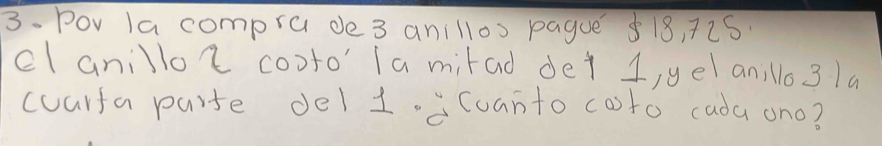 3. Por la compra de 3 anillos pagué $18,725.
el anillo 2 costó la mitad del 1, y el anillo 3 la
cuarta parte del 1. ¿Cuanto costo cada uno?